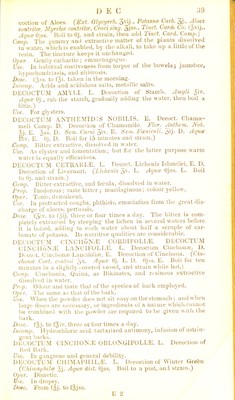 DEC 39
coction of Aloes. (Ext. Glycyrrh. ʒvij. Potassæ Carb. ʒj. Aloes
contritæ, Myrrhæ contritæ, Croci sing. ʒiss. Tinct. Card. Co. f℥vij.
Aquæ ℥jss. Boil to ℥j, and strain, then add Tinct. Card. Comp.)
Comp. The gummy and extractive matter of the plants dissolved
in water, which is enabled, by the alkali, to take up a little of the
resin. The tincture keeps it unchanged.
Oper. Gently cathartic; emmenagogue.
Use. In habitual costiveness from torpor of the bowels; jaundice,
hypochondriasis, and chlorosis.
Dose. f℥ss. to f℥i. taken in the morning.
Incomp. Acids and acidulous salts, metallic salts.
DECOCTUM AMYLI. L. Decoction of Starch. Amyli ʒiv.
Aquæ Oj., rub the starch, gradually adding the water, then boil a
little.)
Use. For glysters.
DECOCTUM ANTHEMIDIS NOBILIS, E. Decoct. Chamæ-
meli Comp. D. Decoction of Chamomile. Flor. Anthem. Nob.
Sem. Carui
Aquæ
Boil for 15 minutes and strain.)
Comp. Bitter extractive, dissolved in water.
Use. As clyster and fomentation; but for the latter purpose warm
water is equally efficacious.
DECOCTUM CETRARIÆ. L. Decoct. Lichenis Islandici, E. D.
Decoction of Liverwort. (Lichenis ʒv. L. Aquæ Boil
to and strain.)
Comp. Bitter extractive, and fecula, dissolved in water.
Prop. Inodorous; taste bitter; mucilaginous; colour yellow.
Oper. Tonic, demulcent.
Use. In protracted cough, phthisis, emaciation from the great dis-
charge of ulcers, pertussis.
Dose three or four times a day. The bitter is com-
pletely extracted by steeping the lichen in several waters before
it is boiled, adding to each water about half a scruple of car-
bonate of potassa. Its nutritive qualities are considerable.
DECOCTUM CINCHONÆ CORDIFOLIÆ. DECOCTUM
CINCHONÆ LANCIFOLIÆ. L. Decoctum Cinchonæ, D.
Decoct. Cinchonæ Lancifoliæ, E. Decoction of Cinchona. (Cin-
chonæ Cort. contus. Aquæ L. D. E. Boil for ten
minutes in a slightly-covered vessel, and strain while hot.)
Comp. Cinchonia, Quina, as Bikinates, and resinous extractive
dissolved in water.
Prop. Odour and taste that of the species of bark employed.
Oper. The same as that of the bark.
Use. When the powder does not sit easy on the stomach; and when
large doses are necessary, or ingredients of a nature which cannot
be combined with the powder are required to be given with the
bark.
Dose. three or four times a day.
Incomp. Hydrochloric acid, tartarized antimony, infusion of astrin-
gent barks.
DECOCTUM CINCHONÆ OBLONGIFOLIÆ. L. Decoction of
Red Bark.
Use. In gangrene and general debility.
DECOCTUM CHIMAPHILÆ. L. Decoction of Winter Green
(Chimaphilæ ℥j. Aquæ dist. Boil to a pint, and strain.)
Oper. Diuretic.
Use. In dropsy.
Dose. From
E 2